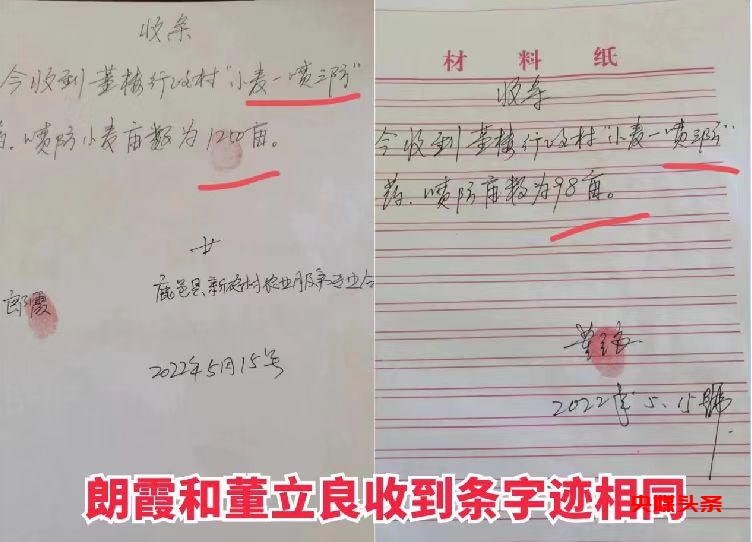 收条
今收到董楼行政村“小麦一喷三防”
药、喷防小麦亩数为1250亩。
郎霞
2022年5月15号
材料纸
收条
今收到董楼行政村“小麦一喷三防”
药、喷防亩数为98亩。
2022年.5.15號
朗霞和董立良收到条字迹相同
央媒头条